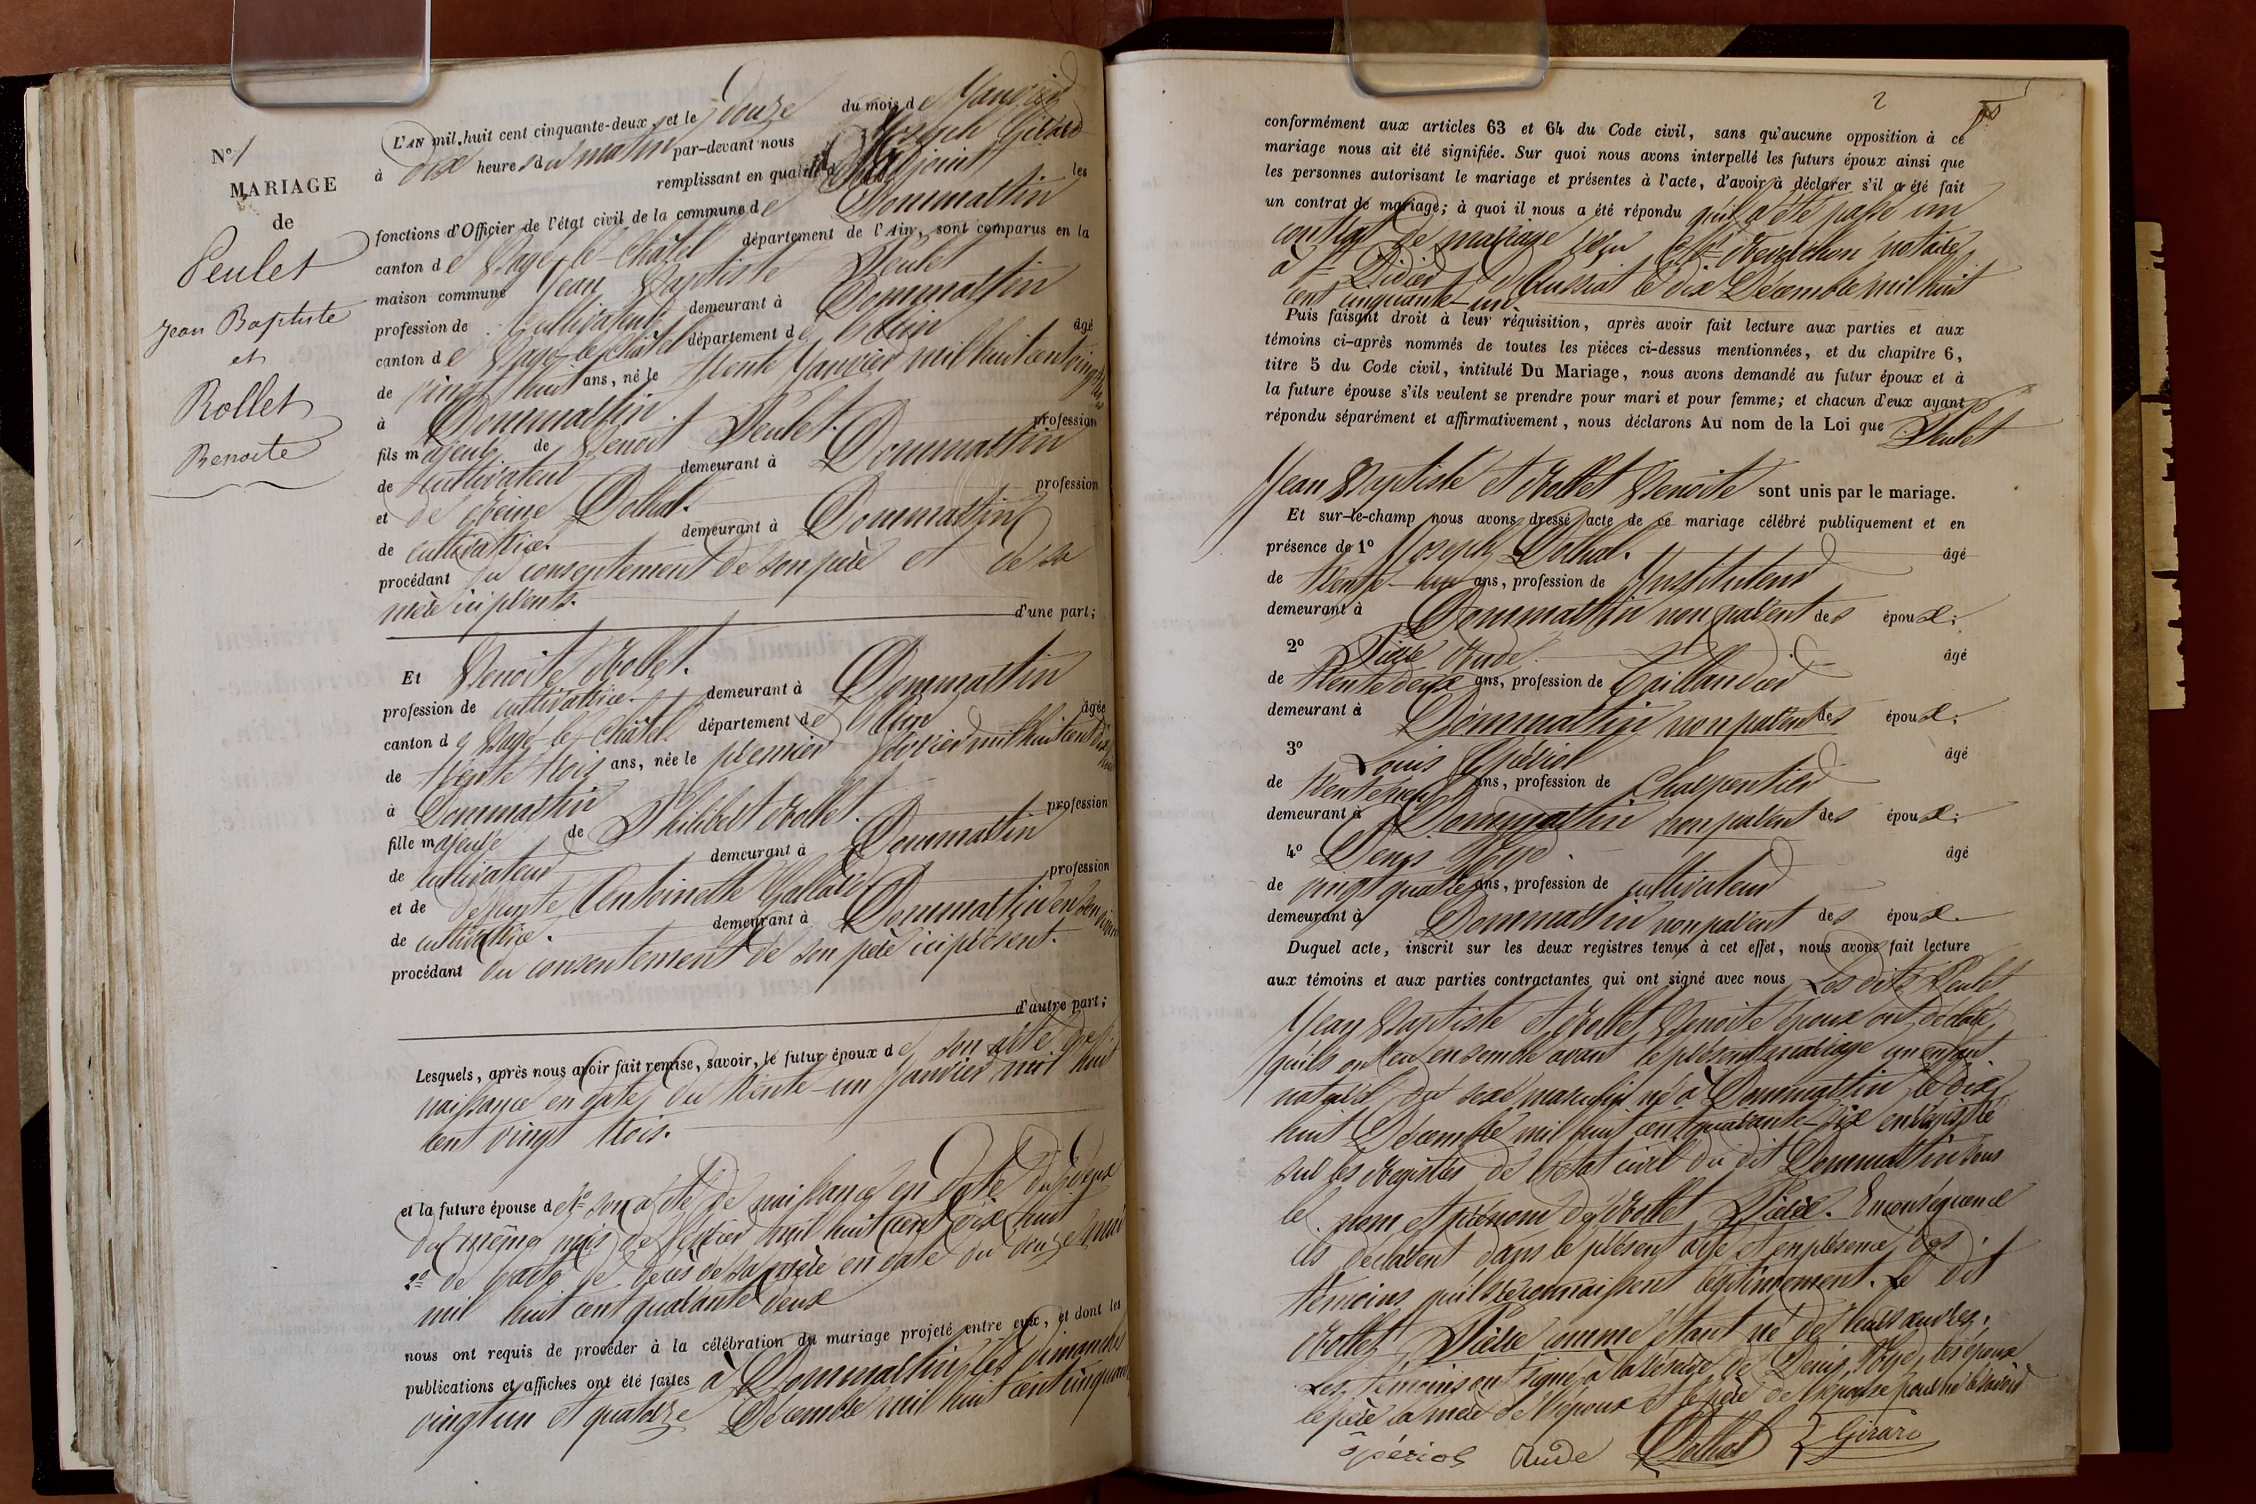 N° 1
MARIAGE
de
Peulet
Jean Baptiste
et
Rollet
Benoite
L'AN mil huit cent cinquante-deux, et le douze du mois de Janvier
à dix heures du matin par-devant nous Joseph Girard
remplissant en qualité d'adjoint les
fonctions d'Officier de l'état civil de la commune de Dommartin
canton de Bagé-le-Châtel département de l'Ain, sont comparus en la
maison commune Jean Baptiste Peulet
profession de cultivateur demeurant à Dommartin
canton de Bagé-le-Châtel département de l'Ain âgé
de vingt huit ans, né le trente Janvier mil huit cent vingt
à Dommartin.
fils majeur de Benoît Peulet. profession
de cultivateur demeurant à Dommartin
et de Reine Dothal. profession
de cultivatrice. demeurant à Dommartin
procédant du consentement de son père et de sa
mère ici présents.
d'une part;
Et Benoite Rollet.
profession de cultivatrice. demeurant à Dommartin
canton de Bagé-le-Châtel département de l'Ain âgée
de trente trois ans, née le premier février mil huit cent dix huit
à Dommartin
fille majeure de Philibert Rollet. profession
de cultivateur demeurant à Dommartin
et de defunte Antoinette profession
de cultivatrice. demeurant à Dommartin en son vivant
procédant du consentement de son père ici présent.
d'autre part;
Lesquels, après nous avoir fait remise, savoir, le futur époux de son acte de
naissance en date du trente-un Janvier mil huit
cent vingt trois.
et la future épouse de 1° son acte de naissance en date du deux
du même mois de février mil huit cent dix huit
2° de l'acte de décès de sa mère en date du douze mai
mil huit cent quarante deux
nous ont requis de procéder à la célébration du mariage projeté entre eux, et dont les
publications et affiches ont été faites à Dommartin les dimanches
vingt un et quatorze Décembre mil huit cent cinquante
2
conformément aux articles 63 et 64 du Code civil, sans qu'aucune opposition à ce
mariage nous ait été signifiée. Sur quoi nous avons interpellé les futurs époux ainsi que
les personnes autorisant le mariage et présentes à l'acte, d'avoir à déclarer s'il a été fait
un contrat de mariage; à quoi il nous a été répondu qu'il a été passé un
contrat de mariage reçu notaire
à St Didier d'Aussiat le dix Décembre mil huit
cent cinquante-un.
Puis faisant droit à leur réquisition, après avoir fait lecture aux parties et aux
témoins ci-après nommés de toutes les pièces ci-dessus mentionnées, et du chapitre 6,
titre 5 du Code civil, intitulé Du Mariage, nous avons demandé au futur époux et à
la future épouse s'ils veulent se prendre pour mari et pour femme; et chacun d'eux ayant
répondu séparément et affirmativement, nous déclarons Au nom de la Loi que Peulet
Jean Baptiste et Rollet Benoite sont unis par le mariage.
Et sur-le-champ nous avons dressé acte de ce mariage célébré publiquement et en
présence de 1° Joseph Dothal. âgé
de trente- ans, profession de Instituteur
demeurant à Dommartin non parent des époux;
2° Pierre Rude. âgé
de trente deux ans, profession de Taillandier
demeurant à Dommartin non parent des époux;
3° Louis Spériol âgé
de trente neuf ans, profession de Charpentier
demeurant à Dommartin non parent des époux;
4° Denys âgé
de vingt quatre ans, profession de cultivateur
demeurant à Dommartin non parent des époux.
Duquel acte, inscrit sur les deux registres tenus à cet effet, nous avons fait lecture
aux témoins et aux parties contractantes qui ont signé avec nous Les dits Peulet
Jean Baptiste et Rollet Benoite époux ont déclaré
qu'ils ont eu ensemble avant le présent mariage un enfant
naturel du sexe masculin né à Dommartin le dix
huit Décembre mil huit cent quarante-six enregistré
sur les Registres de l'état civil du dit Dommartin sous
le nom et prénom de Rollet Pierre. En conséquence
ils déclarent dans le présent acte et en présence des
témoins qu'ils reconnaissent légitimement. Le dit
Rollet Pierre comme étant né de leurs œuvres.
Les témoins ont signé à la réserve de Denis les époux
le père la mère de l'époux et le père de l'épouse pour ne le savoir
Spériol Rude Dothal Girard